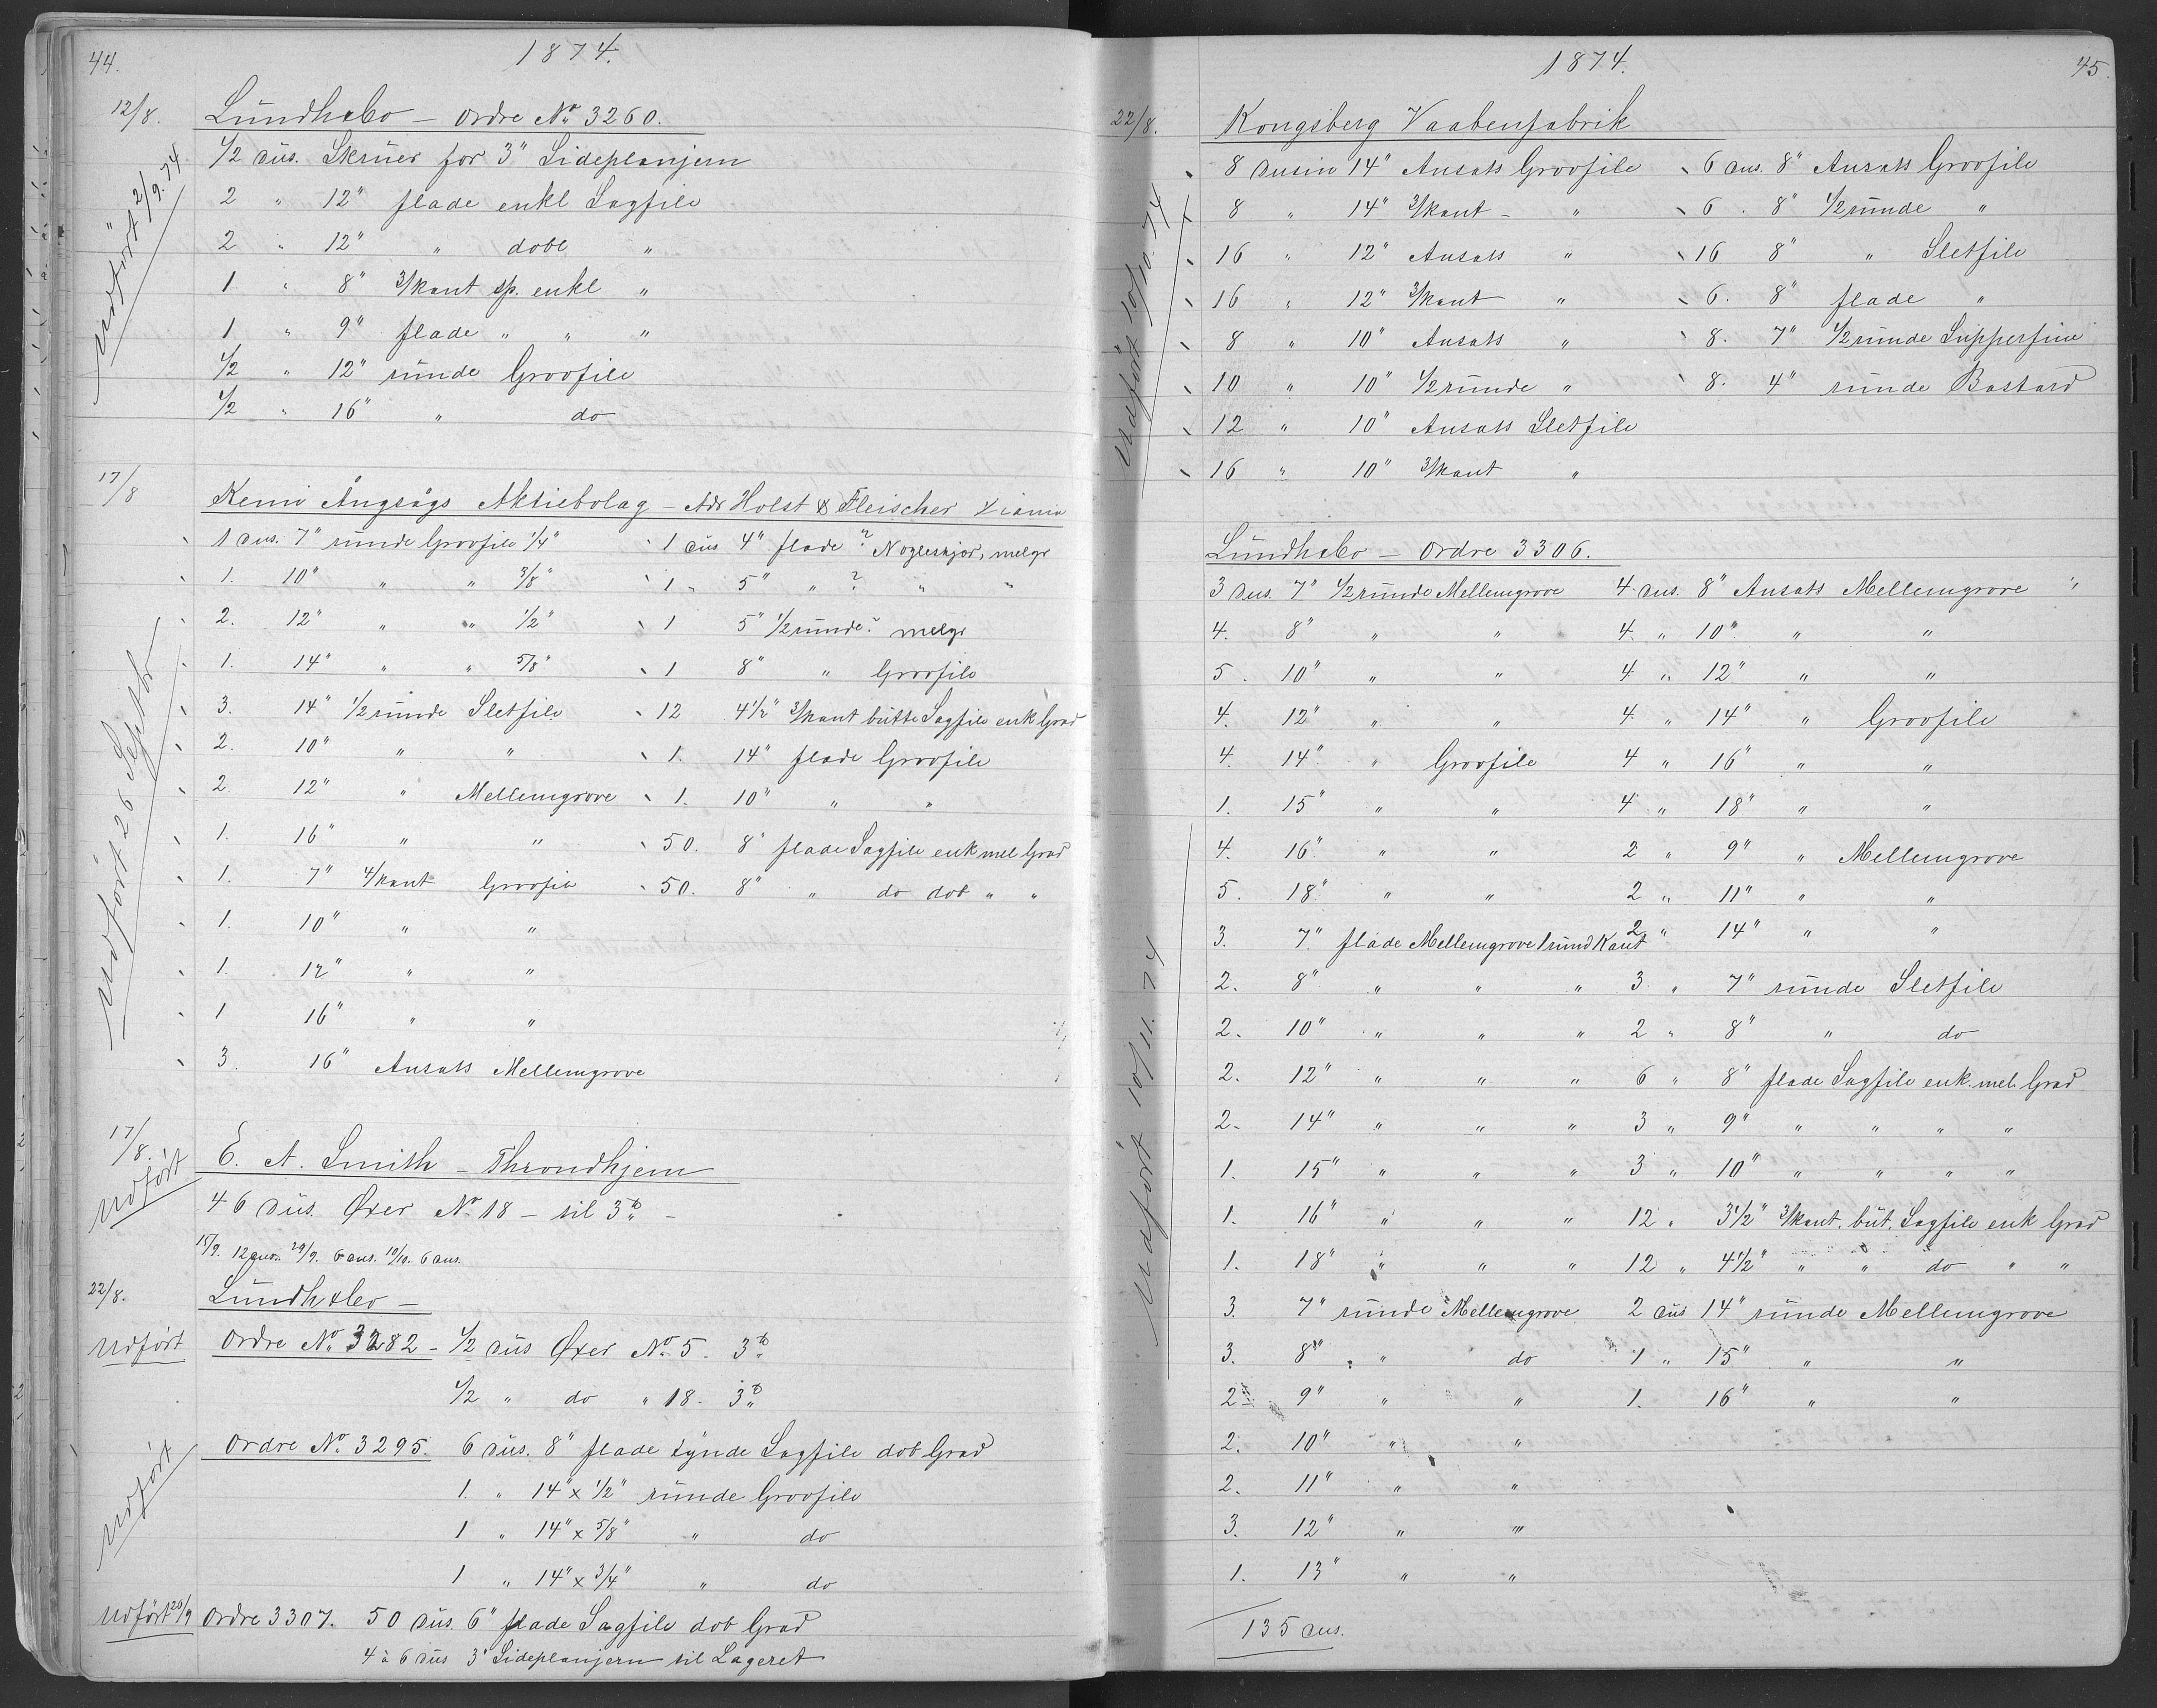 44.
1874.
12/8.
Lundh&Co – Ordre No 3260.
Udfört 2/9.74
1/2 dus. Skruer for 3" Sideplanjern
2 " 12" flade enkl Sagfile
2 " 12" " dobl "
1 " 8" 3/kant sp. enkl "
1 " 9" flade " " "
1/2 " 12" runde Groofile
1/2 " 16" " do
17/8
Kemi Ångsågs Aktiebolag – Adr Holst & Fleischer Xiania
Udfört 26 Septbr
1 dus. 7" runde Groofile 1/4" 1 dus 4" flade ? Nogleskjor, melgr
1. 10" " " 3/8" 1 " 5" " ? " "
2. 12" " " 1/2" 1 5" 1/2 runde ? melgr
1. 14" " " 5/8" 1 8" " Groofile
3. 14" 1/2 runde Sletfile 12 4 1/2" 3/kant butte Sagfile enk Grad
2. 10" " " 1. 14" flade Groofile
2. 12" " Mellemgrove 1. 10" " "
1. 16" " " 50. 8" flade Sagfile enk mel Grad
1. 7" 4/kant Groofile 50. 8" " do dob " "
1. 10" " "
1. 12" " "
1 16" " "
3. 16" Ansats Mellemgrove
17/8.
Udfört
E. A. Smith – Throndhjem
46 dus. Øxer No 18 – til 3 –
15/9. 12 dus. 29/9. 6 dus. 10/10. 6 dus.
22/8.
Lundh&Co –
Udfört Ordre No 3282 – 1/2 dus Øxer No 5. 3
1/2 " do " 18. 3
Udfört
Ordre No 3295. 6 dus. 8" flade tynde Sagfile dob Grad
1. " 14" x 1/2" runde Groofile
1 " 14" x 5/8" " do
1 " 14" x 3/4" " do
Udfört 26/9 Ordre 3307. 50 dus. 6" flade Sagfile dob Grad
4 à 6 dus 3" Sideplanjern til Lageret
1874.
45.
22/8.
Kongsberg Vaabenfabrik
Udfört 10/10.74
8 dusin 14" Ansats Groofile 6 dus. 8" Ansats Groofile
8 " 14" 3/kant – " 6 . 8" 1/2 runde "
16 " 12" Ansats " 16 8" " Sletfile
16 " 12" 3/kant " 6. 8" flade "
8 " 10" Ansats " 8. 7" 1/2 runde Supperfine
10 " 10" 1/2 runde " 8. 4" runde Bastard
12 " 10" Ansats Sletfile
16 " 10" 3/kant "
Lundh&Co – Ordre 3306.
Udfört 10/11.74
3 dus. 7" 1/2 runde Mellemgrove 4 dus. 8" Ansats Mellemgrove
4. 8" " " 4. " 10" " "
5. 10" " " 4 " 12" " "
4. 12" " " 4. " 14" " Groofile
4. 14" " Groofile 4 " 16" " "
1. 15" " " 4 " 18" " "
4. 16" " " 2 " 9" " Mellemgrove
5. 18" " " 2 " 11" " "
3. 7" flade Mellemgrove 1 rund Kant 2 " 14" " "
2. 8" " " " 3 " 7" runde Sletfile
2. 10" " " " 2 " 8" " do
2. 12" " " " 6 " 8" flade Sagfile enk. mel. Grad
2. 14" " " " 3 " 9" " " " "
1. 15" " " " 3 " 10" " " " "
1. 16" " " " 12 " 3 1/2" 3/kant. but. Sagfile enk Grad
1. 18" " " " 12 " 4 1/2" " " do " "
3. 7" runde Mellemgrove 2 dus 14" runde Mellemgrove
3. 8" " do 1 " 15" " "
2 9" " " 1. 16" " "
2. 10" " "
2. 11" " "
3. 12" " "
1. 13" " "
135 dus.